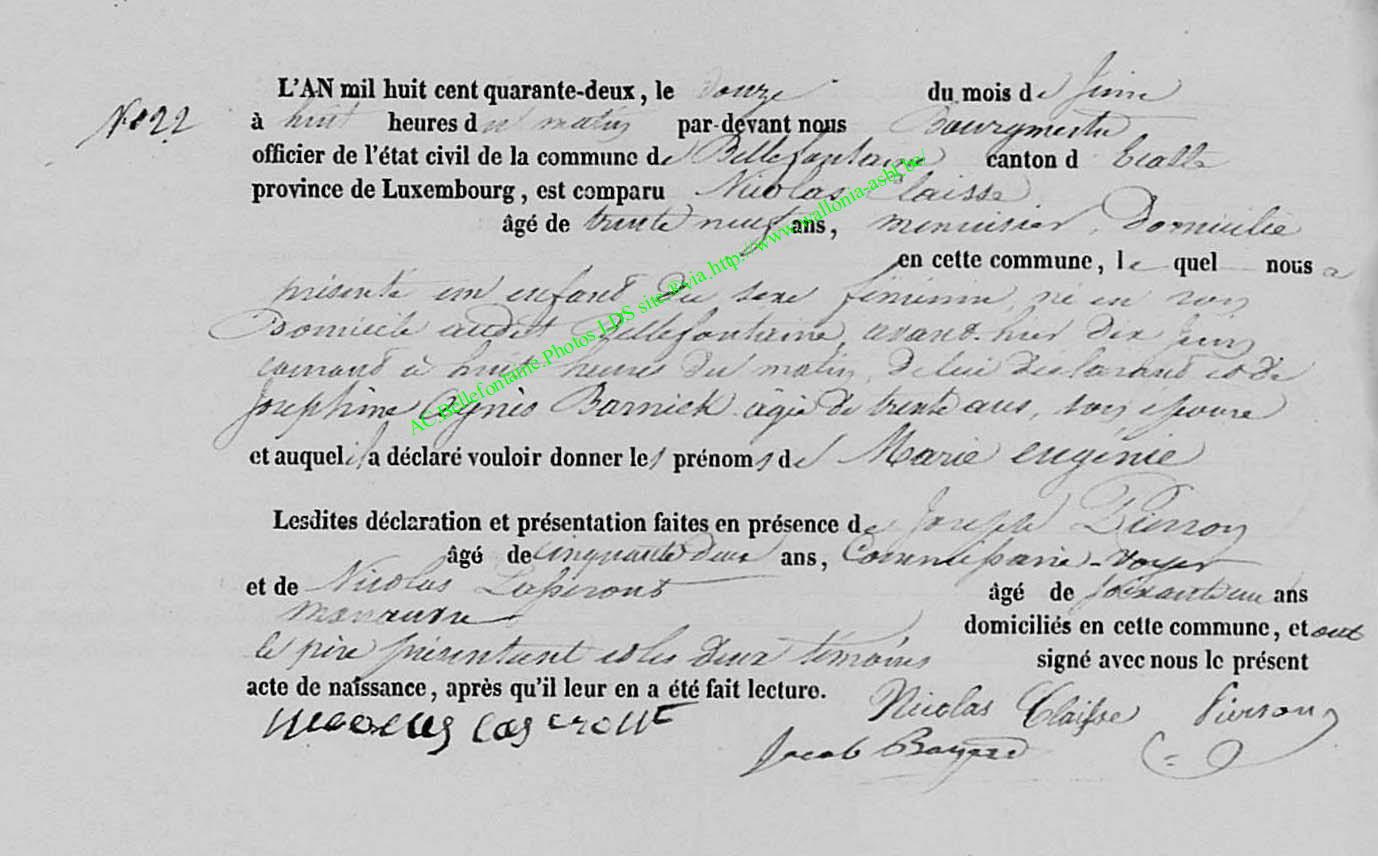 N° 22
L'AN mil huit cent quarante-deux, le douze du mois de Juin
à huit heures du matin par-devant nous Bourgmestre
officier de l'état civil de la commune de Bellefontaine canton d'Etalle
province de Luxembourg, est comparu Nicolas Claisse
âgé de trente neuf ans, menuisier, Domicilié
en cette commune, lequel nous a
présenté un enfant du sexe féminin, né en son
Domicile audit Bellefontaine, avant-hier dix Juin
courant à huit heures du matin, de lui déclarant et de
Joséphine Agnès Barnick agée de trente ans son épouse
et auquel il a déclaré vouloir donner les prénoms de Marie eugénie
Lesdites déclaration et présentation faites en présence de Joseph Pierson
âgé de cinquante deux ans, Commissaire-voyer
et de Nicolas Lasperont âgé de soixante un ans
manœuvre domiciliés en cette commune, et ont
le père présentant et les deux témoins signé avec nous le présent
acte de naissance, après qu'il leur en a été fait lecture.
Nicolas Claisse Pierson
Jacob
AC.Bellefontaine.Photos.LDS site,®via.http://www.wallonia-asbl.be/